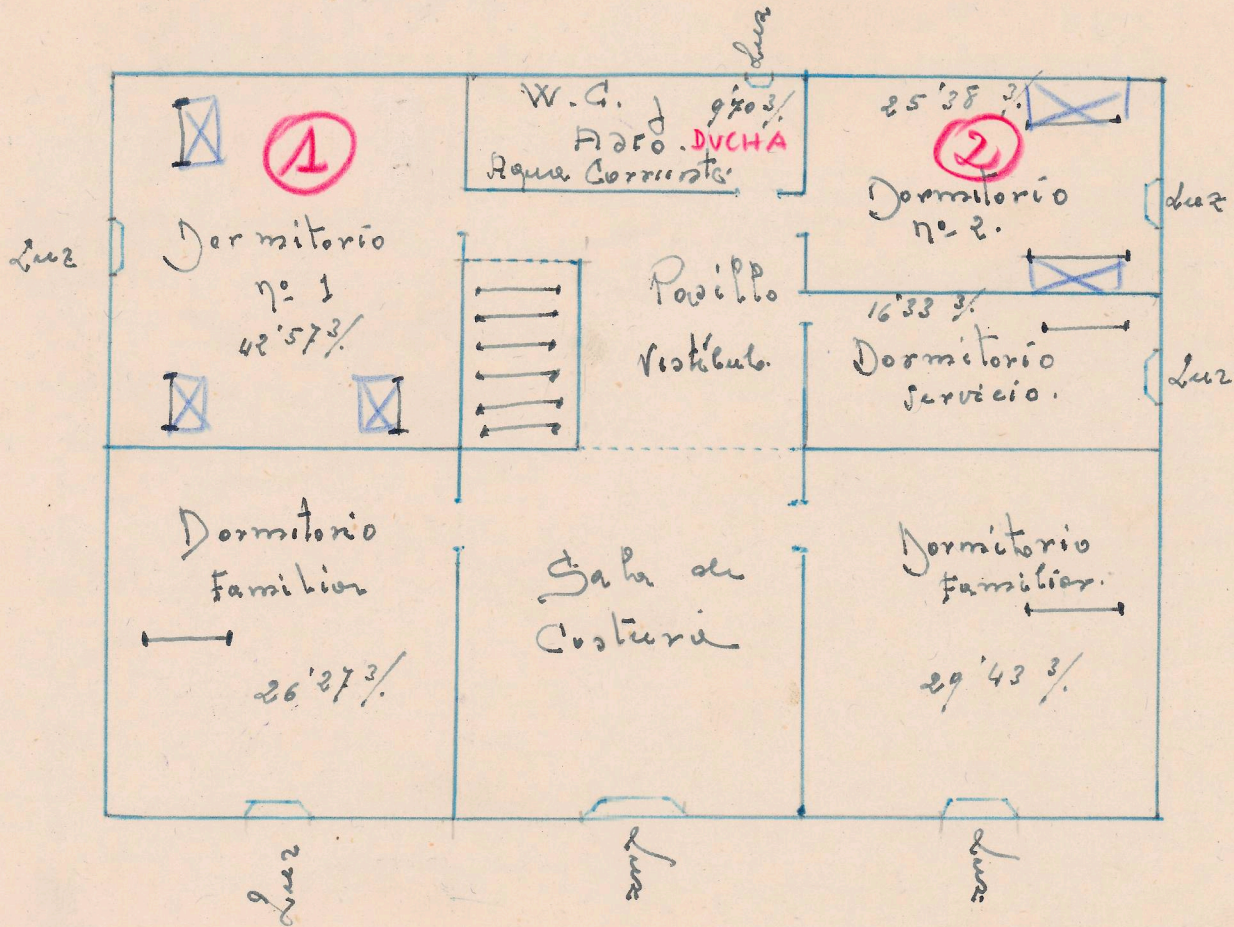 Luz
W.C. y
9'70 3/.
Aseo. DUCHA
Agua Corriente.
1
Dormitorio
nº 1
42'57 3/.
Luz
25'38 3/.
2
Dormitorio
nº 2.
Luz
Pasillo
Vestíbulo.
16'33 3/.
Dormitorio
servicio.
Luz
Dormitorio
Familiar
26'27 3/.
Sala de
Costura
Dormitorio
Familiar.
29'43 3/.
Luz
Luz
Luz